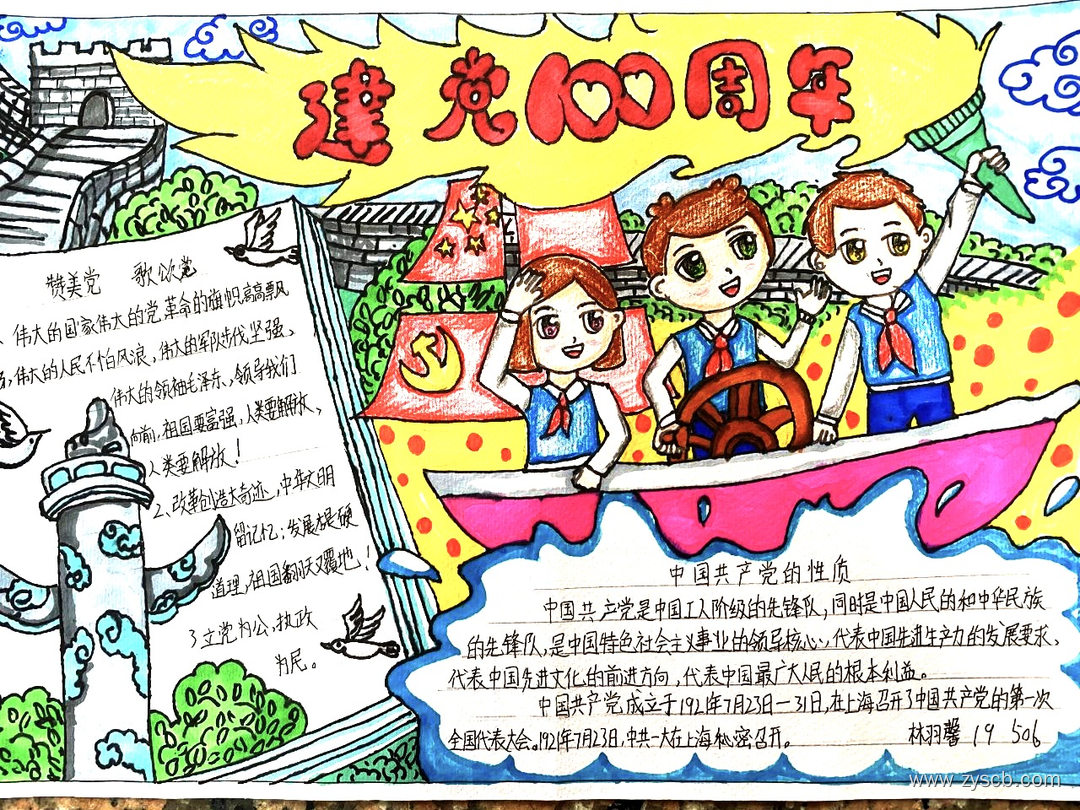 建党100周年
赞美党 歌颂党
、伟大的国家伟大的党,革命的旗帜高高飘
扬,伟大的人民不怕风浪,伟大的军队战伐坚强、
伟大的领袖毛泽东,领导我们
向前,祖国要富强,人类要解放、
人类要解放!
2、改革创造大奇迹,中华文明
留记忆;发展才是硬
道理,祖国翻天又覆地!
3立党为公,执政
为民。
中国共产党的性质
中国共产党是中国工人阶级的先锋队,同时是中国人民的和中华民族
的先锋队,是中国特色社会主义事业的领导核心,代表中国先进生产力的发展要求、
代表中国先进文化的前进方向,代表中国最广大人民的根本利益。
中国共产党成立于1921年7月23日—31日,在上海召开了中国共产党的第一次
全国代表大会。1921年7月23日,中共一大在上海秘密召开。 林羽馨 19 506
www.zyscb.com